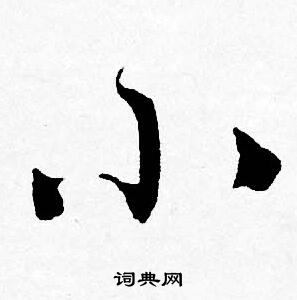 小
词典网